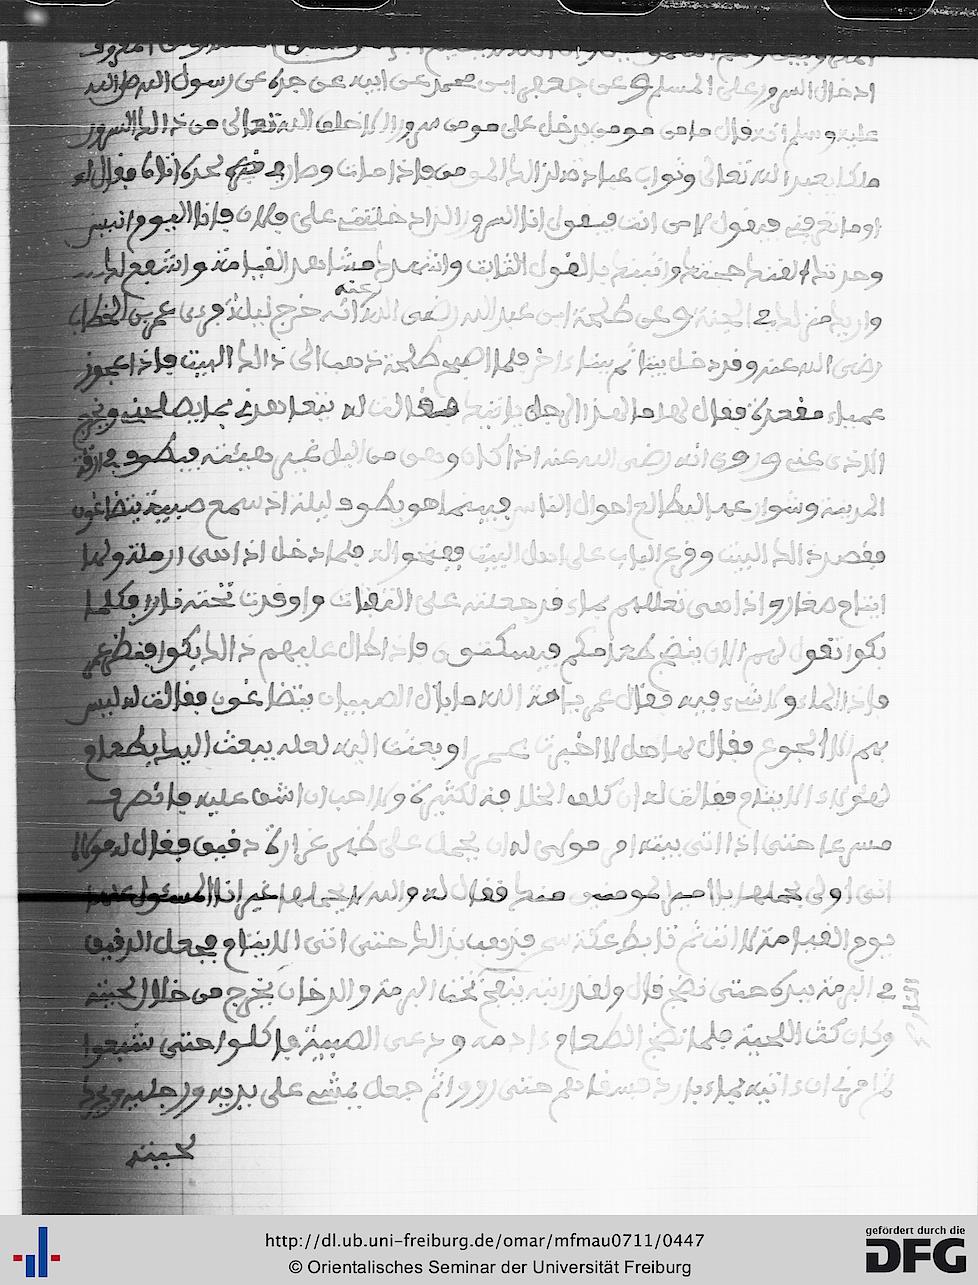 ادخال السرور على المسلم وعن جعفر ابن محمد عن ابيه عن جده عن رسول الله صلى الله
عليه وسلم انه قال ما من مومن يدخل على مومن سرورا الا خلق الله تعالى من ذالك السرور
ملكا يعبد الله تعالى وثواب عبادته لذالك المومن فاذا مات وصار في لحده اتاه فقال له
اوما تعرفني فيقول له من انت فيقول انا السرور الذي ادخلتني على فلان فانا اليوم انيس
وحدتك القنك حجتك واثبتك بالقول الثابت واشهدك مشاهد القيامة واشفع لك
واريك منزلك في الجنة وعن طلحة ابن عبد الله رضي الله عنه انه خرج ليلة فرءى عمر بن الخطاب
رضي الله عنه وقد دخل بيتا ثم بيتا ءاخر فلما اصبح طلحة ذهب الى ذالك البيت فاذا عجوز
عمياء مقعدة فقال لها ما لهذا الرجل ياتيك فقالت له يتعاهدني بما يصلحني ويخرج
الاذى عني وروي انه رضي الله عنه اذا كان وهن من اليل غير هيئته فيطوف في ازقة
المدينة وشوارعها ليطالع احوال الناس فبينما هو يطوف ليلة اذ سمع صبية يتضاغون
فقصد ذالك البيت وقرع الباب على اهل البيت ففتحوا له فلما دخل اذا هي ارملة ولها
ايتام صغار واذا هي تعللهم بماء قد جعلته على التفيات واوقدت تحته نارا فكلما
بكوا تقول لهم الان ينضج طعامكم فيسكتون فاذا طال عليهم ذالك بكوا فنظر عمر
فاذا الماء ولا شيء فيه فقال عمر يا امة الله ما بال الصبيان يتضاغون فقالت له ليس
بهم الا الجوع فقال لها هل لا اخبرت عمر او بعثت اليه لعله يبعث اليك بطعام
لهؤلاء الايتام فقالت له ان كلف الخلافة لكثيرة ولا احب ان اشق عليه فانصرف
مسرعا حتى اذا اتى بيته امر مولى له ان يحمل على ظهره غرارة دقيق فقال له مولاه
انى اولى بحملها يا امير المومنين منك فقال له والله لا يحملها غيري انا المسئول عنها
يوم القيامة لا انت ثم تابط عكة سمن فذهب بذالك حتى اتى الايتام فجعل الدقيق
في البرمة بيده حتى نضج قال ولقد رايته ينفخ تحت البرمة والدخان يخرج من خلال لحيته
وكان كث اللحية فلما نضج الطعام ءادمه ودعى الصبية فاكلوا حتى شبعوا
ثم امرني ان ءاتيه بماء بارد فسقاهم حتى رووا ثم جعل يمشي على يديه ورجليه
لحيته
http://dl.ub.uni-freiburg.de/omar/mfmau0711/0447
© Orientalisches Seminar der Universität Freiburg
gefördert durch die
DFG